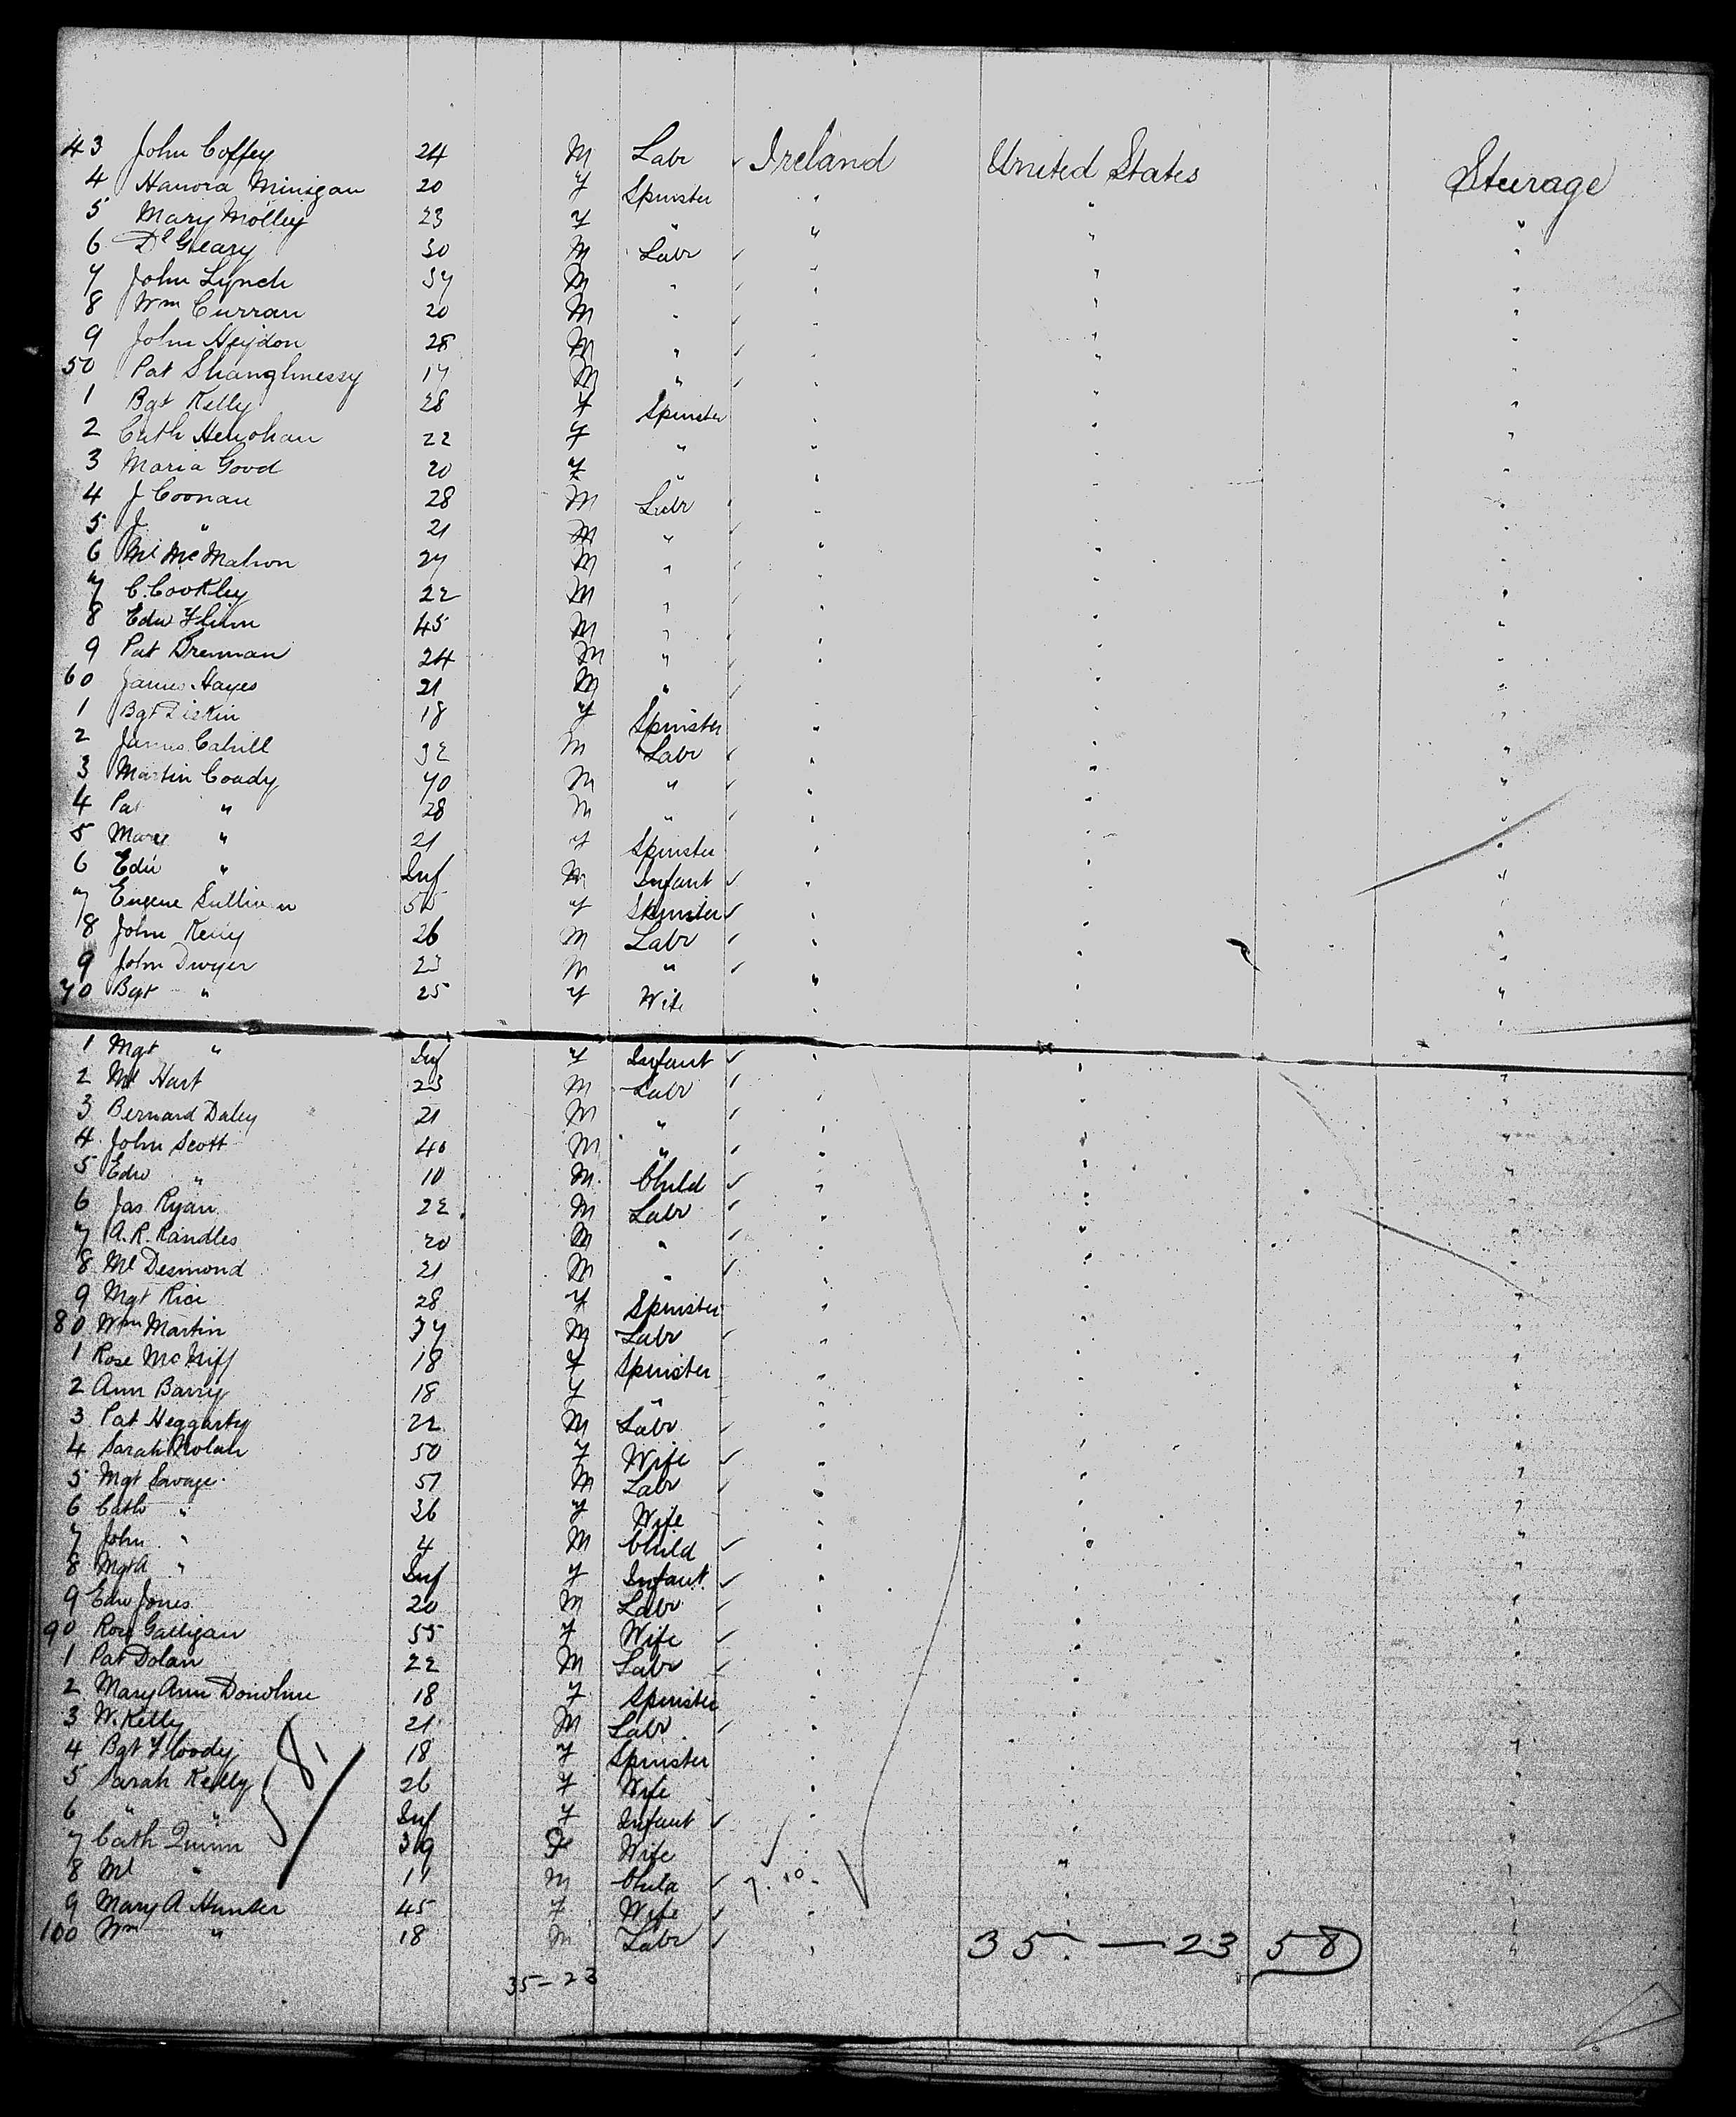 43 John Coffey 24 M Labr ✓ Ireland United States Sturage
4 Hanora Minigan 20 F Spinster " " "
5 Mary Molley 23 F " " " "
6 Dl Geary 30 M Labr ✓ " " "
7 John Lynch 37 M " ✓ " " "
8 Wm Curran 20 M " ✓ " " "
9 John Heydon 28 M " ✓ " " "
50 Pat Shanghnessy 17 M " ✓ " " "
1 Bgt Kelly 28 F Spinster " " "
2 Cath Henohan 22 F " " " "
3 Maria Good 20 F " " " "
4 J Coonan 28 M Labr " " "
5 J. " 21 M " ✓ " " "
6 Ml McMahon 27 M " ✓ " " "
7 C. Cookley 22 M " ✓ " " "
8 Edw Flinn 45 M " ✓ " " "
9 Pat Brennan 24 M " ✓ " " "
60 James Hayes 21 M " ✓ " " "
1 Bgt Liskin 18 F Spinster " " "
2 James Cahill 32 M Labr ✓ " " "
3 Martin Coady 40 M " ✓ " " "
4 Pat " 28 M " ✓ " " "
5 Mary " 21 F Spinster " " "
6 Edw " Inf M Infant ✓ " " "
7 Eugene Sullivan 55 F Spinster ✓ " " "
8 John Kelly 26 M Labr ✓ " " "
9 John Dwyer 23 M " ✓ " " "
70 Bgt " 25 F Wife " " "
1 Mgt " Inf F Infant ✓ " " "
2 Ml Hart 23 M Labr ✓ " " "
3 Bernard Daley 21 M " ✓ " " "
4 John Scott 40 M " ✓ " " "
5 Edw " 10 M Child ✓ " " "
6 Jas Ryan 22 M Labr ✓ " " "
7 A. R. Randles 20 M " ✓ " " "
8 Ml Desmond 21 M " ✓ " " "
9 Mgt Rice 28 F Spinster " " "
80 Wm Martin 37 M Labr ✓ " " "
1 Rose McNiff 18 F Spinster " " "
2 Ann Barry 18 F " " " "
3 Pat Heggarty 22 M Labr ✓ " " "
4 Sarah Nolan 50 F Wife ✓ " " "
5 Mgt Savage 57 M Labr ✓ " " "
6 Cath " 36 F Wife " " "
7 John " 4 M Child ✓ " " "
8 Mgt A " Inf F Infant ✓ " " "
9 Edw Jones 20 M Labr ✓ " " "
90 Rose Galligan 55 F Wife ✓ " " "
1 Pat Dolan 22 M Labr ✓ " " "
2 Mary Ann Donohue 18 F Spinster " " "
3 W. Kelly 21 M Labr ✓ " " "
4 Bgt Floody 18 F Spinster " " "
5 Sarah Kelly 26 F Wife " " "
6 " " Inf F Infant ✓ " " "
7 Cath Quinn 39 F Wife " " "
8 Ml " 11 M Child ✓ " " "
9 Mary A Hunter 45 F Wife ✓ " " "
100 Wm " 18 M Labr ✓ " " "
58
35 — 23 58
35 – 23